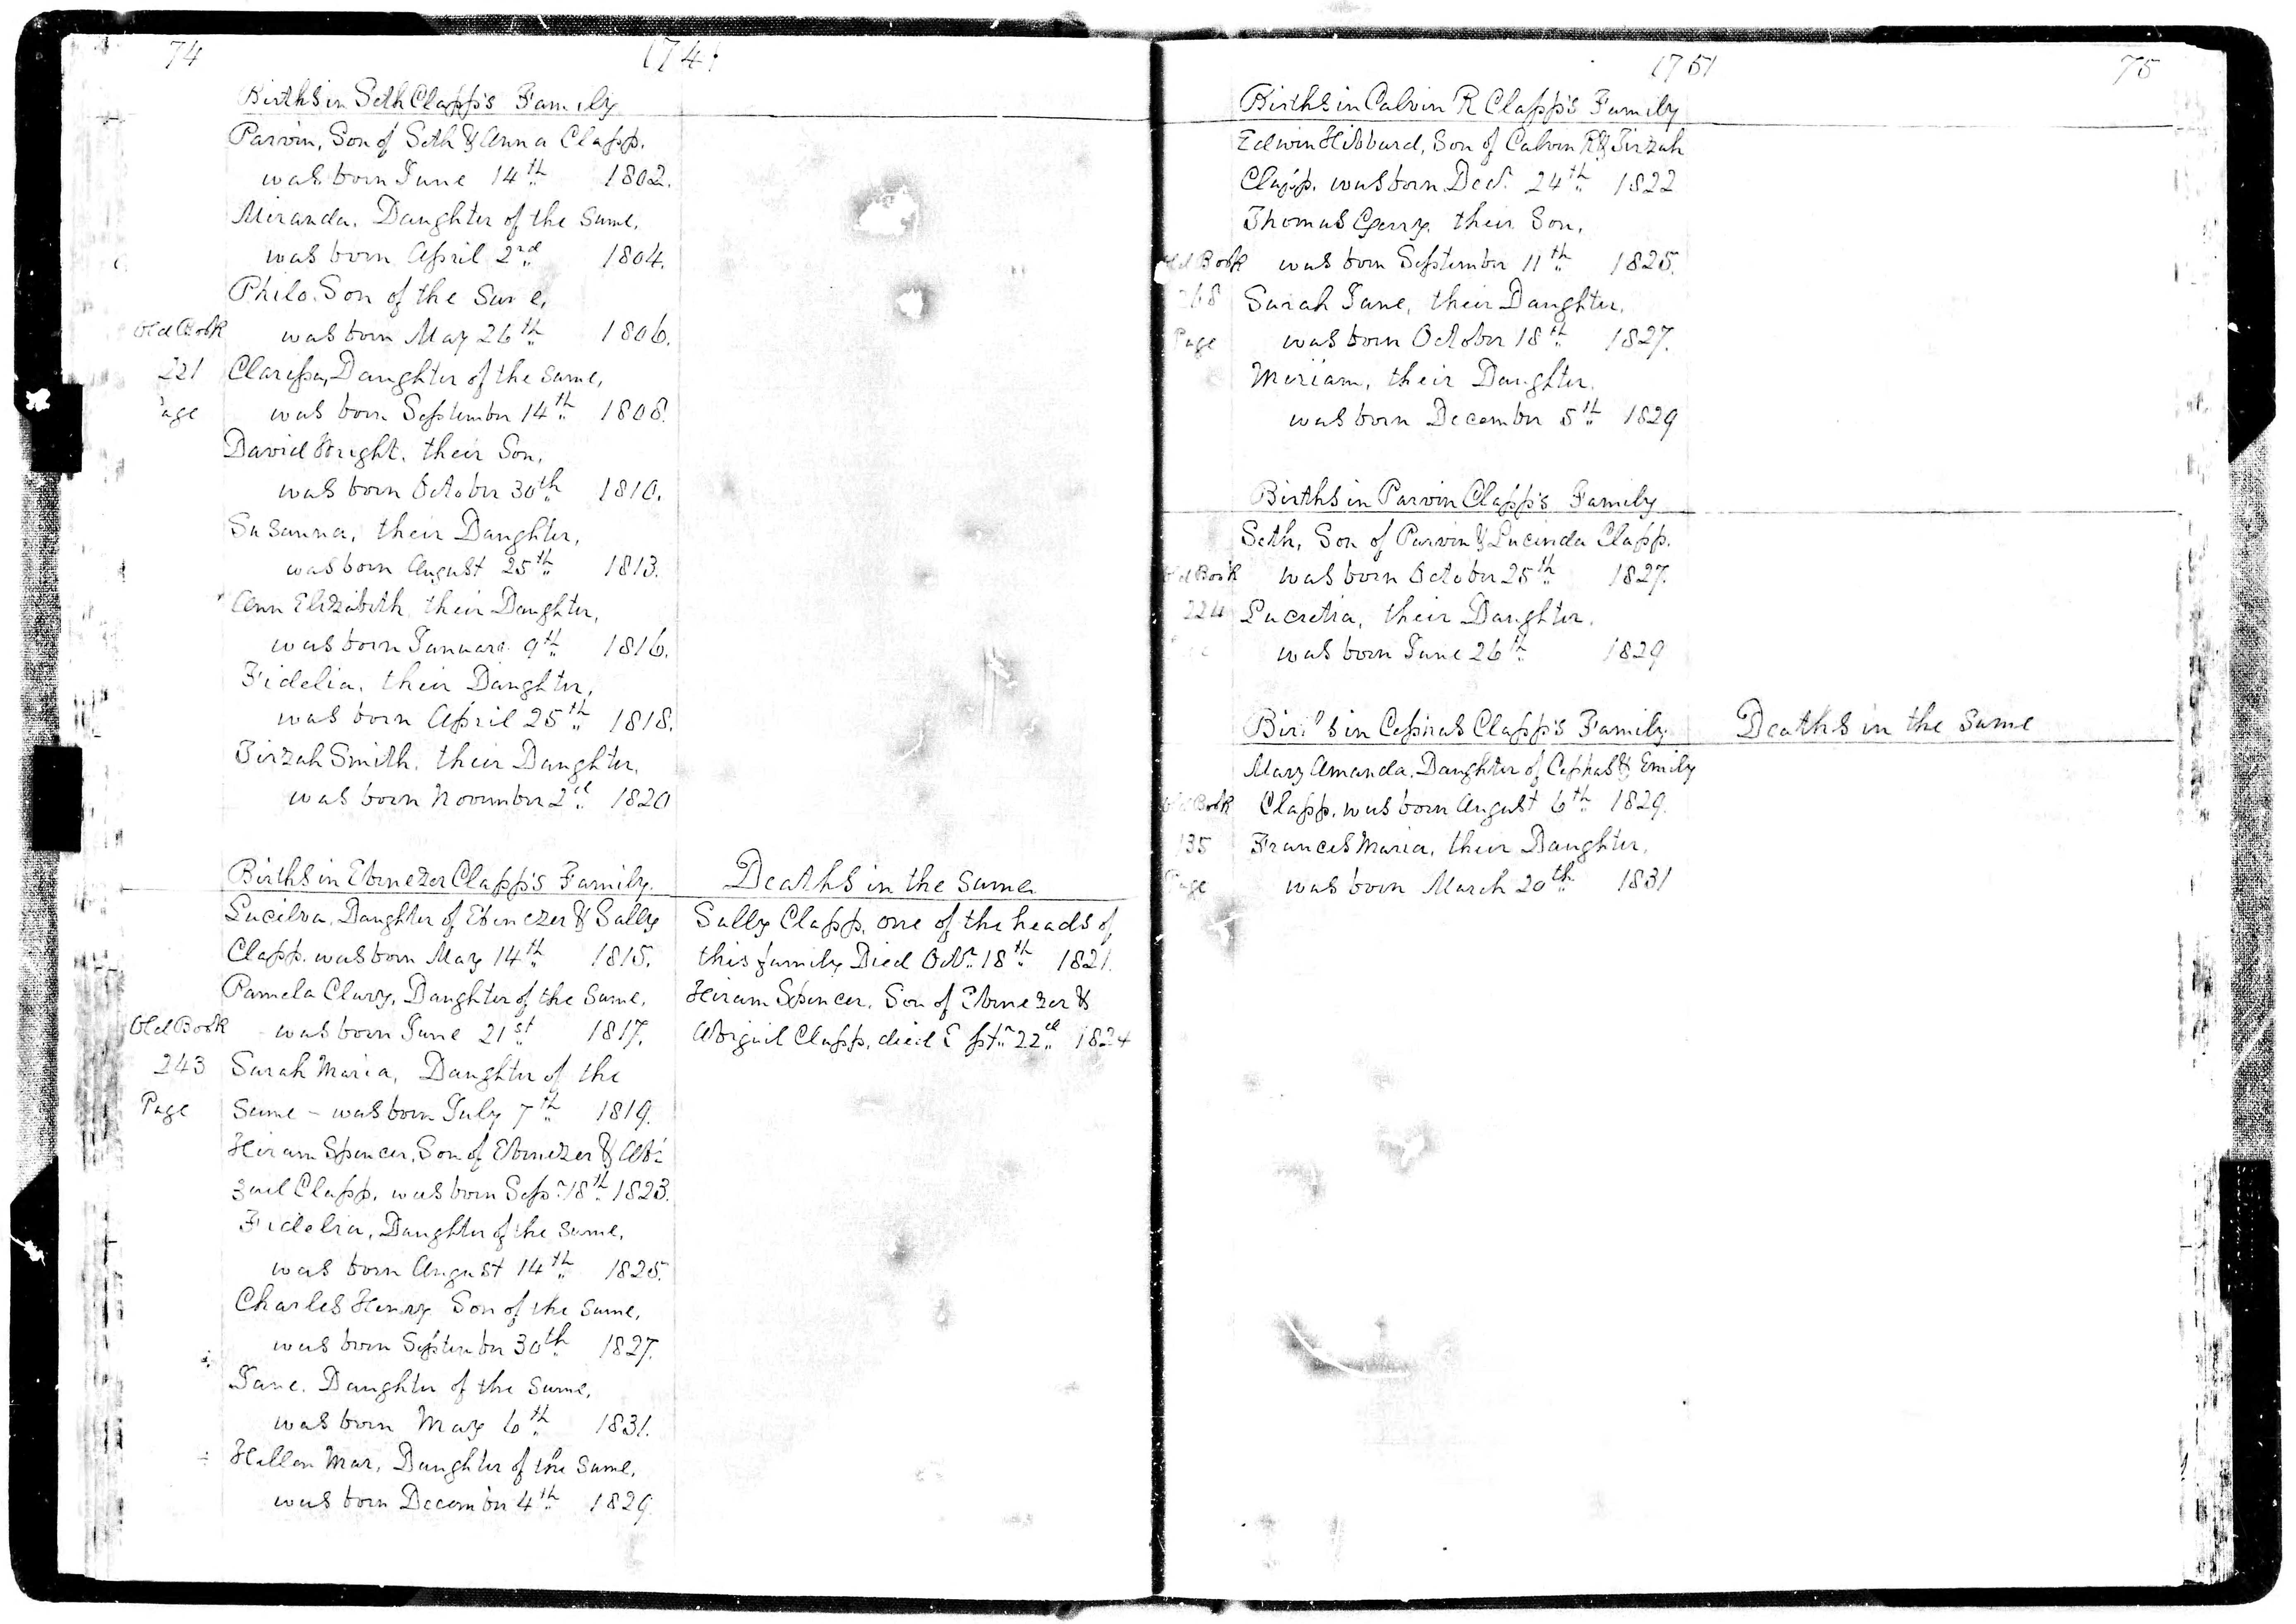 74
(74)
Births in Seth Clapp's Family
Parvin, Son of Seth & Anna Clapp.
was born June 14th 1802.
Miranda, Daughter of the Same,
was born April 2nd 1804.
Philo. Son of the Same,
Old Book was born May 26th 1806.
221 Clarissa, Daughter of the Same,
Page was born September 14th 1808.
David Wright, their Son,
was born October 30th 1810.
Susanna, their Daughter,
was born August 25th 1813.
Ann Elizabeth, their Daughter,
was born January 9th 1816.
Fidelia, their Daughter,
was born April 25th 1818.
Tirzah Smith, their Daughter,
was born November 2d 1820
Births in Ebenezer Clapp's Family.
Lucilva, Daughter of Ebenezer & Sally
Clapp. was born May 14th 1815.
Pamela Clary, Daughter of the Same,
Old Book - was born June 21st 1817.
243 Sarah Maria, Daughter of the
Page Same - was born July 7th 1819.
Hiram Spencer, Son of Ebenezer & Abi-
gail Clapp, was born Sepr 18th 1823.
Fidelia, Daughter of the Same,
was born August 14th 1825.
Charles Henry Son of the Same,
was born September 30th 1827.
Jane. Daughter of the Same,
was born May 6th 1831.
Hellen Mar, Daughter of the Same,
was born December 4th 1829
Deaths in the Same
Sally Clapp, one of the heads of
this family Died Octr 18th 1821.
Hiram Spencer, Son of Ebenezer &
Abigail Clapp, died Septr 22d 1824
(75)
75
Births in Calvin R Clapp's Family
Edwin Hibbard, Son of Calvin R & Tirzah
Clapp. was born Decr 24th 1822
Thomas Gerry, their Son,
Old Book was born September 11th 1825.
268 Sarah Jane, their Daughter,
Page was born October 18th 1827.
Miriam, their Daughter,
was born December 5th 1829
Births in Parvin Clapp's Family
Seth, Son of Parvin & Lucinda Clapp.
Old Book was born October 25th 1827.
224 Lucretia, their Daughter.
was born June 26th 1829
Births in Cephas Clapp's Family
Mary Amanda, Daughter of Cephas & Emily
Old Book Clapp. was born August 6th 1829.
135 Frances Maria, their Daughter,
Page was born March 20th 1831
Deaths in the Same